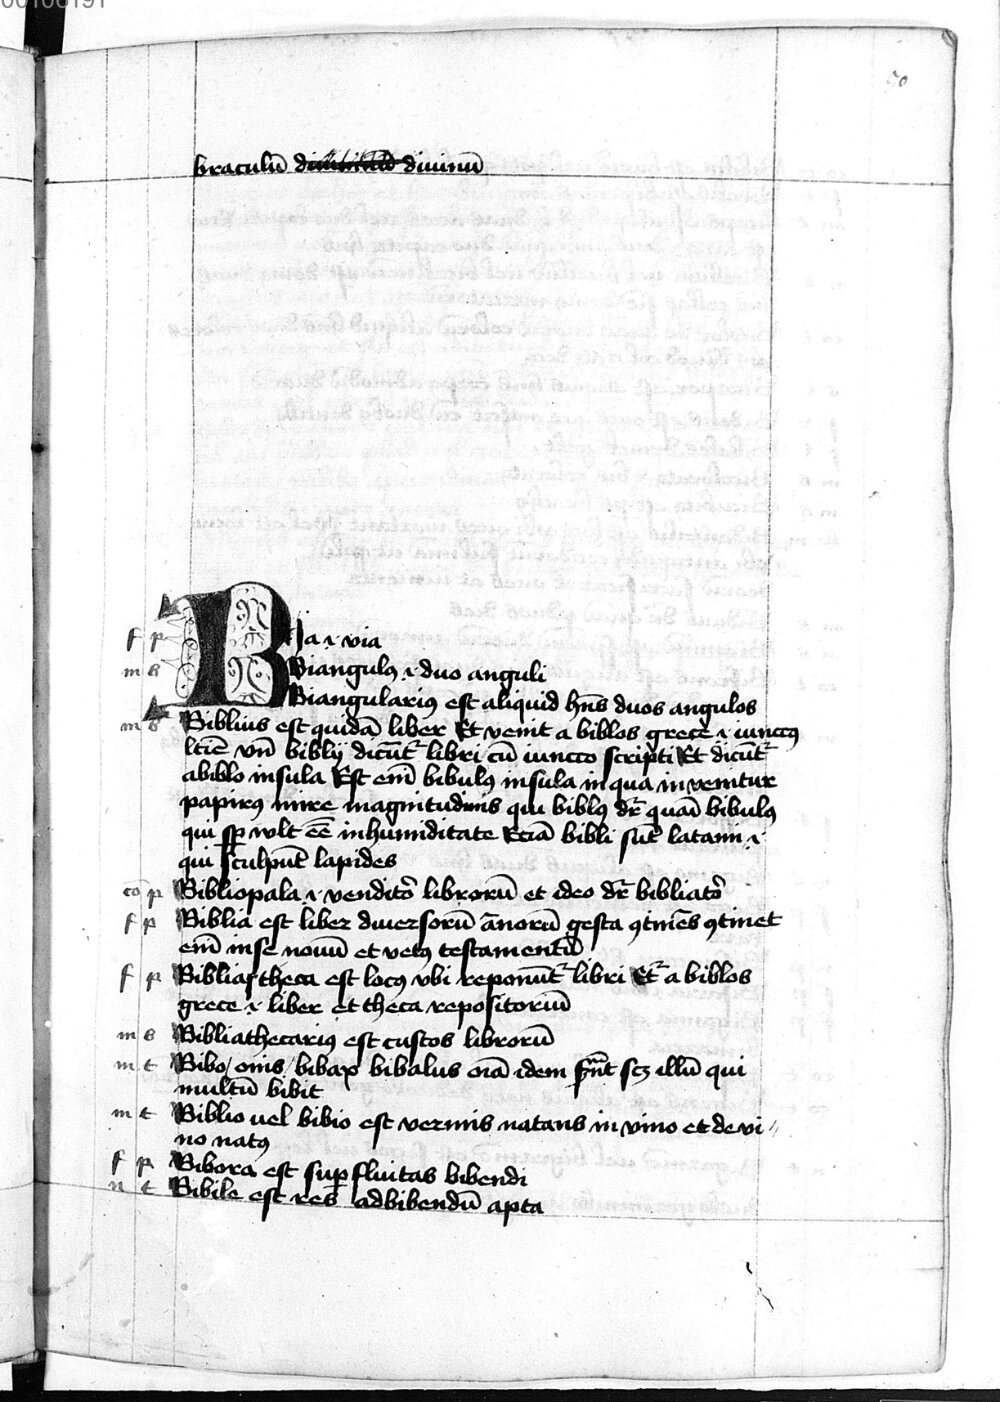 00106191
50
braculū diuinū
f p Bia .i. via
m s Biangulꝯ .i. duo anguli
Biangulariꝯ est aliquid hn̄s duos angulos
m s Biblius est quidā liber Et venit a biblos grece .i. iunccꝯ
vn̄ biblij dicūt̄ libri cū iuncco scripti Et dicūt̄
a biblo insula Est em̄ bibulꝯ insula in qua invenitur
papirꝯ mire magnitudinis qui biblꝯ dr̄ quā bibulꝯ
qui sp̄ wlt ēe in humiditate Eciā bibli sūt latami .i.
qui sculpūt lapides
co p Bibliopala .i. venditor̄ librorū et ideo dr̄ bibliator̄
f p Biblia est liber diuersorū ān̄orū gesta ꝯtinēs ꝯtinet
em̄ in se nouū et vetꝯ testamentū
f p Bibliastheca est locꝯ vbi reponūt̄ libri Et̄ a biblos
grece .i. liber et theca repositoriū
m s Bibliathecariꝯ est custos librorū
m t Bibo / onis / bibax bibalus oīa idem sn̄t scꝫ illū qui
multū bibit
m t Biblio uel bibio est vermis natans in vino et de vi //
no natꝯ
f p Bibora est suꝑfluitas bibendi
n t Bibile est res ad bibendū apta